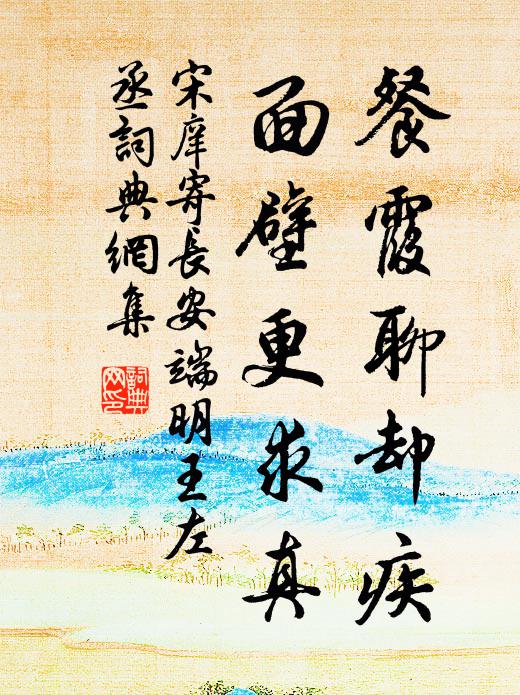 餐霞聊却疾
面壁更求真
宋庠寄長安端明王左
丞詞典網集
詞典网印